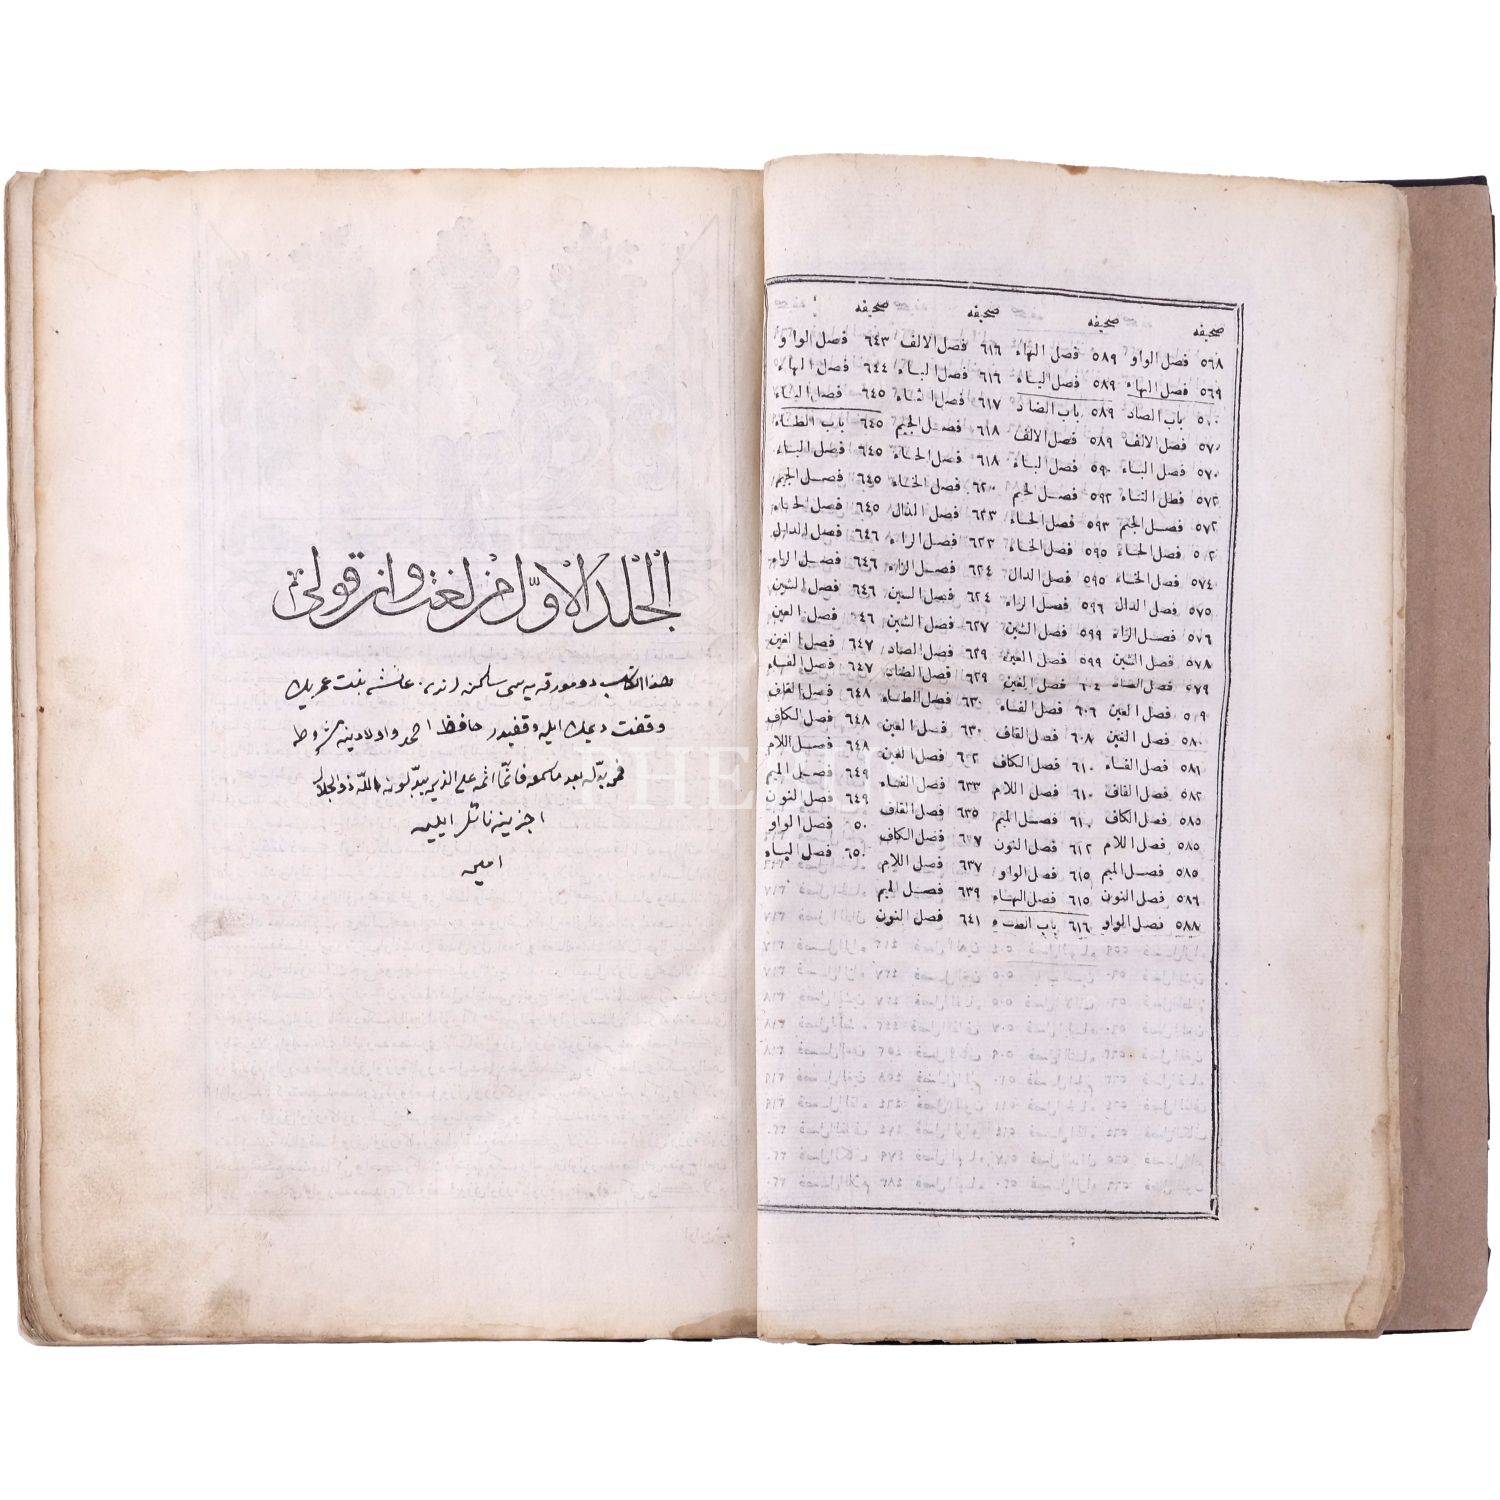 صحيفه صحيفه صحيفه صحيفه
٥٦٨ فصل الواو ٥٨٩ فصل الهاء ٦١٦ فصل الالف ٦٤٣ فصل الواو
٥٦٩ فصل الهاء ٥٨٩ فصل الياء ٦١٦ فصل الباء ٦٤٤ فصل الهاء
٥٧٠ باب الصاد ٥٨٩ باب الضاد ٦١٧ فصل الثاء ٦٤٥ فصل الياء
٥٧٠ فصل الالف ٥٨٩ فصل الالف ٦١٨ فصل الجيم ٦٤٥ باب الظاء
٥٧٠ فصل الباء ٥٩٠ فصل الباء ٦١٨ فصل الحاء ٦٤٥ فصل الباء
٥٧٢ فصل التاء ٥٩٢ فصل الجيم ٦٢٠ فصل الخاء ٦٤٥ فصل الجيم
٥٧٢ فصل الجيم ٥٩٣ فصل الحاء ٦٢٣ فصل الذال ٦٤٥ فصل الحاء
٥٧٢ فصل الحاء ٥٩٥ فصل الخاء ٦٢٣ فصل الراء ٦٤٦ فصل الدال
٥٧٤ فصل الخاء ٥٩٥ فصل الدال ٦٢٤ فصل الزاء ٦٤٦ فصل الراء
٥٧٥ فصل الدال ٥٩٦ فصل الراء ٦٢٤ فصل السين ٦٤٦ فصل الشين
٥٧٦ فصل الراء ٥٩٩ فصل الشين ٦٢٧ فصل الشين ٦٤٦ فصل العين
٥٧٨ فصل الشين ٥٩٩ فصل العين ٦٢٩ فصل الصاد ٦٤٧ فصل الغين
٥٧٩ فصل الصاد ٦٠٤ فصل الغين ٦٢٩ فصل الضاد ٦٤٧ فصل الفاء
٥٧٩ فصل العين ٦٠٦ فصل الفاء ٦٣٠ فصل الطاء ٦٤٨ فصل القاف
٥٨٠ فصل الغين ٦٠٨ فصل القاف ٦٣٠ فصل العين ٦٤٨ فصل الكاف
٥٨١ فصل الفاء ٦١٠ فصل الكاف ٦٣٢ فصل الغين ٦٤٨ فصل اللام
٥٨٢ فصل القاف ٦١٠ فصل اللام ٦٣٣ فصل الفاء ٦٤٩ فصل الميم
٥٨٥ فصل الكاف ٦١٠ فصل الميم ٦٣٥ فصل القاف ٦٤٩ فصل النون
٥٨٥ فصل اللام ٦١٢ فصل النون ٦٣٧ فصل الكاف ٦٥٠ فصل الواو
٥٨٥ فصل الميم ٦١٥ فصل الواو ٦٣٧ فصل اللام ٦٥٠ فصل الياء
٥٨٦ فصل النون ٦١٥ فصل الهاء ٦٣٩ فصل الميم
٥٨٨ فصل الواو ٦١٦ باب الطاء ٦٤١ فصل النون
الجلد الاول من لغت وانقولى
هذا الكتاب دومورقه يه سى عائشه بنت عمر بيك
وقفت ديمك ايله وقفيدر حافظ احمد واولادينه شروط
فمن بدله بعد ما سمعه فانما اثمه على الذين يبدلونه الله ذو الجلال
ايليه
امين
PHEBUS